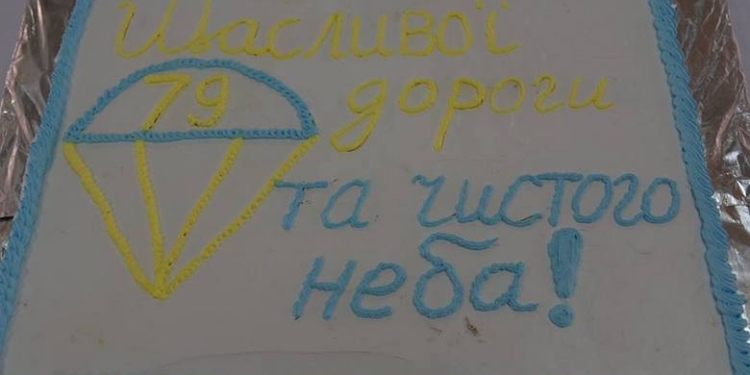 Щасливої
79
дороги
та чистого
неба!